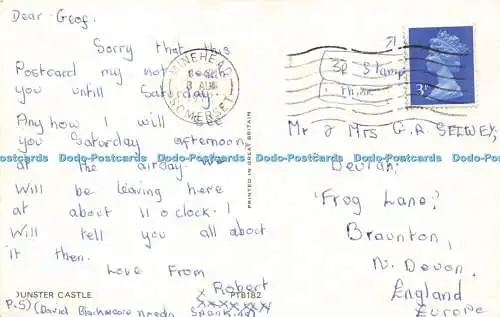 Dear Geof.
Sorry that this
Postcard my not reach
you untill Saturday.
Any how I will see
you Saturday afternoon
at the airday. We
Will be leaving here
at about 11 o'clock. I
Will tell you all about
it then.
Love From
Robert
P.S) (David needs Spanking)
DUNSTER CASTLE
PT8182
PRINTED IN GREAT BRITAIN
MINEHEAD
SOMERSET
3P Stamp
3P
Mr & Mrs G.A
'Frog Lane'
Braunton,
N. Devon.
England
Europe
Dodo-Postcards Dodo-Postcards Dodo-Postcards Dodo-Postcards Dodo-Postcards